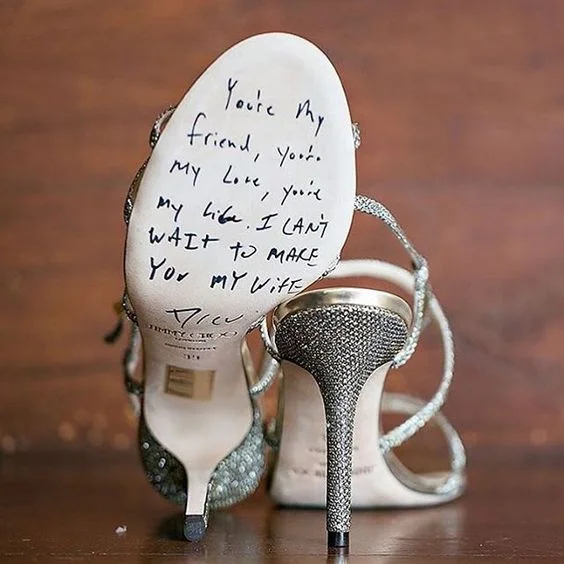 You're My
friend, you're
My Love, you're
My Life. I CAN'T
WAIT to MAKE
You MY WiFE
JIMMY CHOO
LONDON